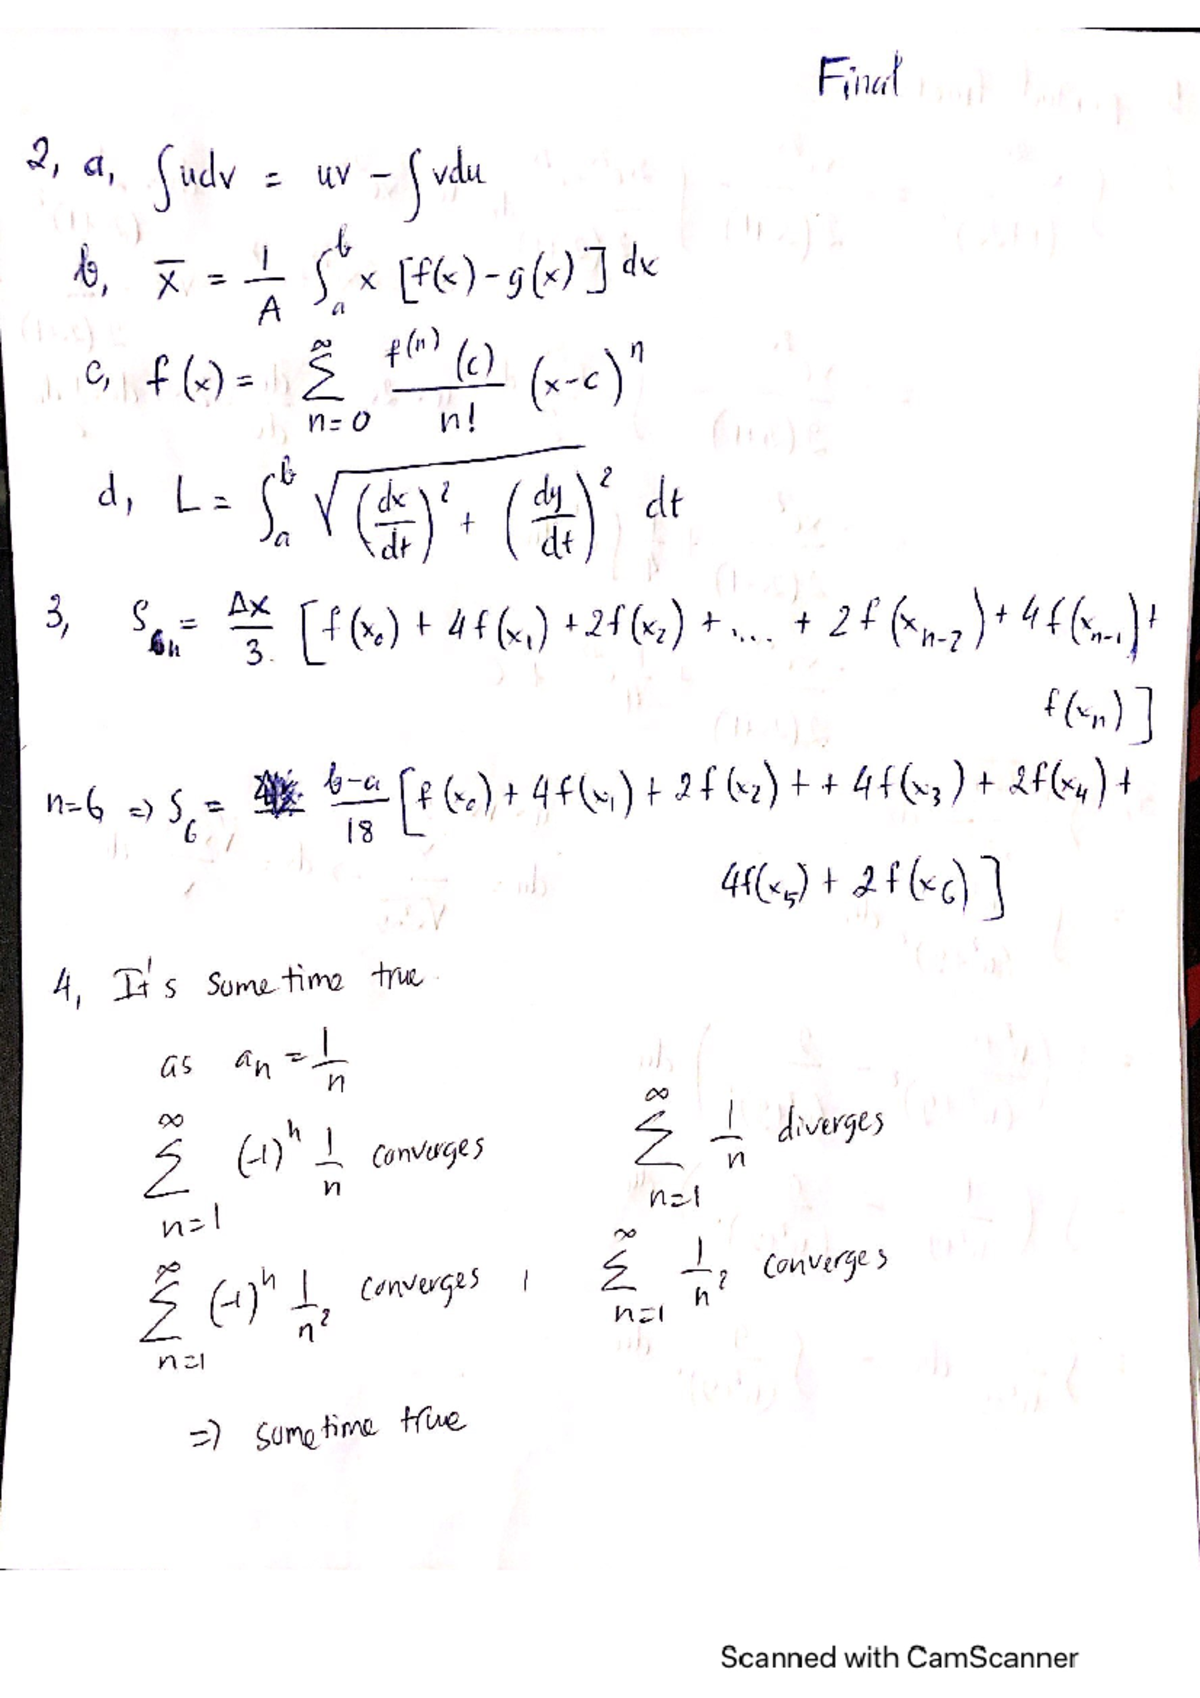 Final
2, a, ∫udv = uv - ∫vdu
b, x̄ = 1/A ∫_a^b x [f(x) - g(x)] dx
c, f(x) = ∑_{n=0}^∞ f^(n)(c)/n! (x-c)^n
d, L = ∫_a^b √((dx/dt)^2 + (dy/dt)^2) dt
3, S_n = Δx/3 [f(x_0) + 4f(x_1) + 2f(x_2) + .... + 2f(x_{n-2}) + 4f(x_{n-1}) +
f(x_n)]
n=6 => S_6 = b-a/18 [f(x_0) + 4f(x_1) + 2f(x_2) + + 4f(x_3) + 2f(x_4) +
4f(x_5) + 2f(x_6)]
4, It's sometime true.
as a_n = 1/n
∑_{n=1}^∞ (-1)^n 1/n converges ∑_{n=1}^∞ 1/n diverges
∑_{n=1}^∞ (-1)^n 1/n^2 converges , ∑_{n=1}^∞ 1/n^2 converges
=> sometime true
Scanned with CamScanner